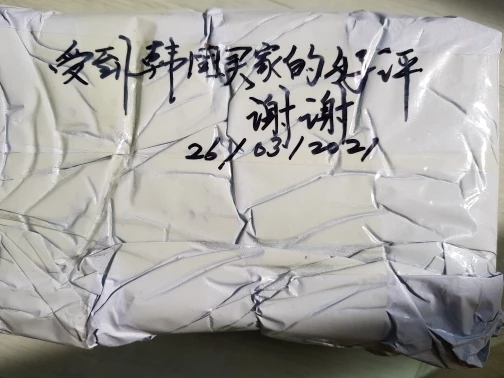 受到韩国买家的好评
谢谢
26/03/2021